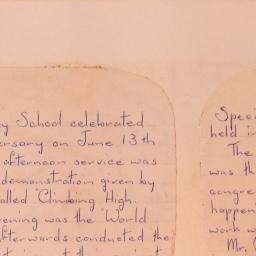 y School celebrated
ersary on June 13th
afternoon service was
demonstration given by
alled 'Climbing High.
ening was the 'World
fterwards conducted the
Speci
held in
The
was th
congre
happen
work w
Mr.